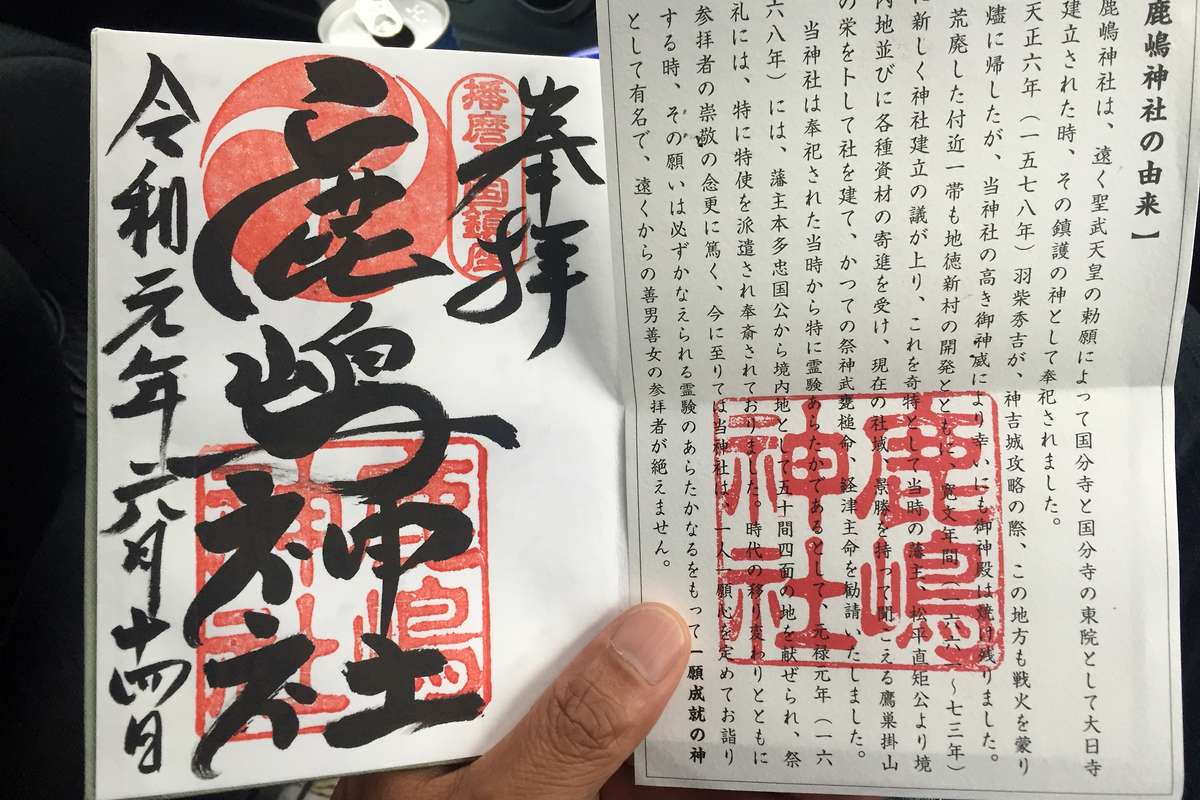 奉拝
播磨国鎮座
鹿嶋神社
鹿嶋神社
令和元年六月十四日
鹿嶋神社の由来】
鹿嶋神社は、遠く聖武天皇の勅願によって国分寺と国分寺の東院として大日寺
建立された時、その鎮護の神として奉祀されました。
天正六年（一五七八年）羽柴秀吉が、神吉城攻略の際、この地方も戦火を蒙り
燼に帰したが、当神社の高き御神威により幸いにも御神殿は焼け残りました。
荒廃した付近一帯も地徳新村の開発とともに、寛文年間（一六六一～七三年）
に新しく神社建立の議が上り、これを奇特として当時の藩主、松平直矩公より境
内地並びに各種資材の寄進を受け、現在の社域、景勝を持って聞こえる鷹巣掛山
の栄を卜して社を建て、かつての祭神武甕槌命、経津主命を勧請いたしました。
当神社は奉祀された当時から特に霊験あらたかであるとして、元禄元年（一六
六八年）には、藩主本多忠国公から境内地として五十間四面の地を献ぜられ、祭
礼には、特に特使を派遣され奉斎されておりました。時代の移り変わりとともに
参拝者の崇敬の念更に篤く、今に至りては当神社は、一人一願心を定めてお詣り
する時、その願いは必ずかなえられる霊験のあらたかなるをもって一願成就の神
として有名で、遠くからの善男善女の参拝者が絶えません。
鹿嶋
神社